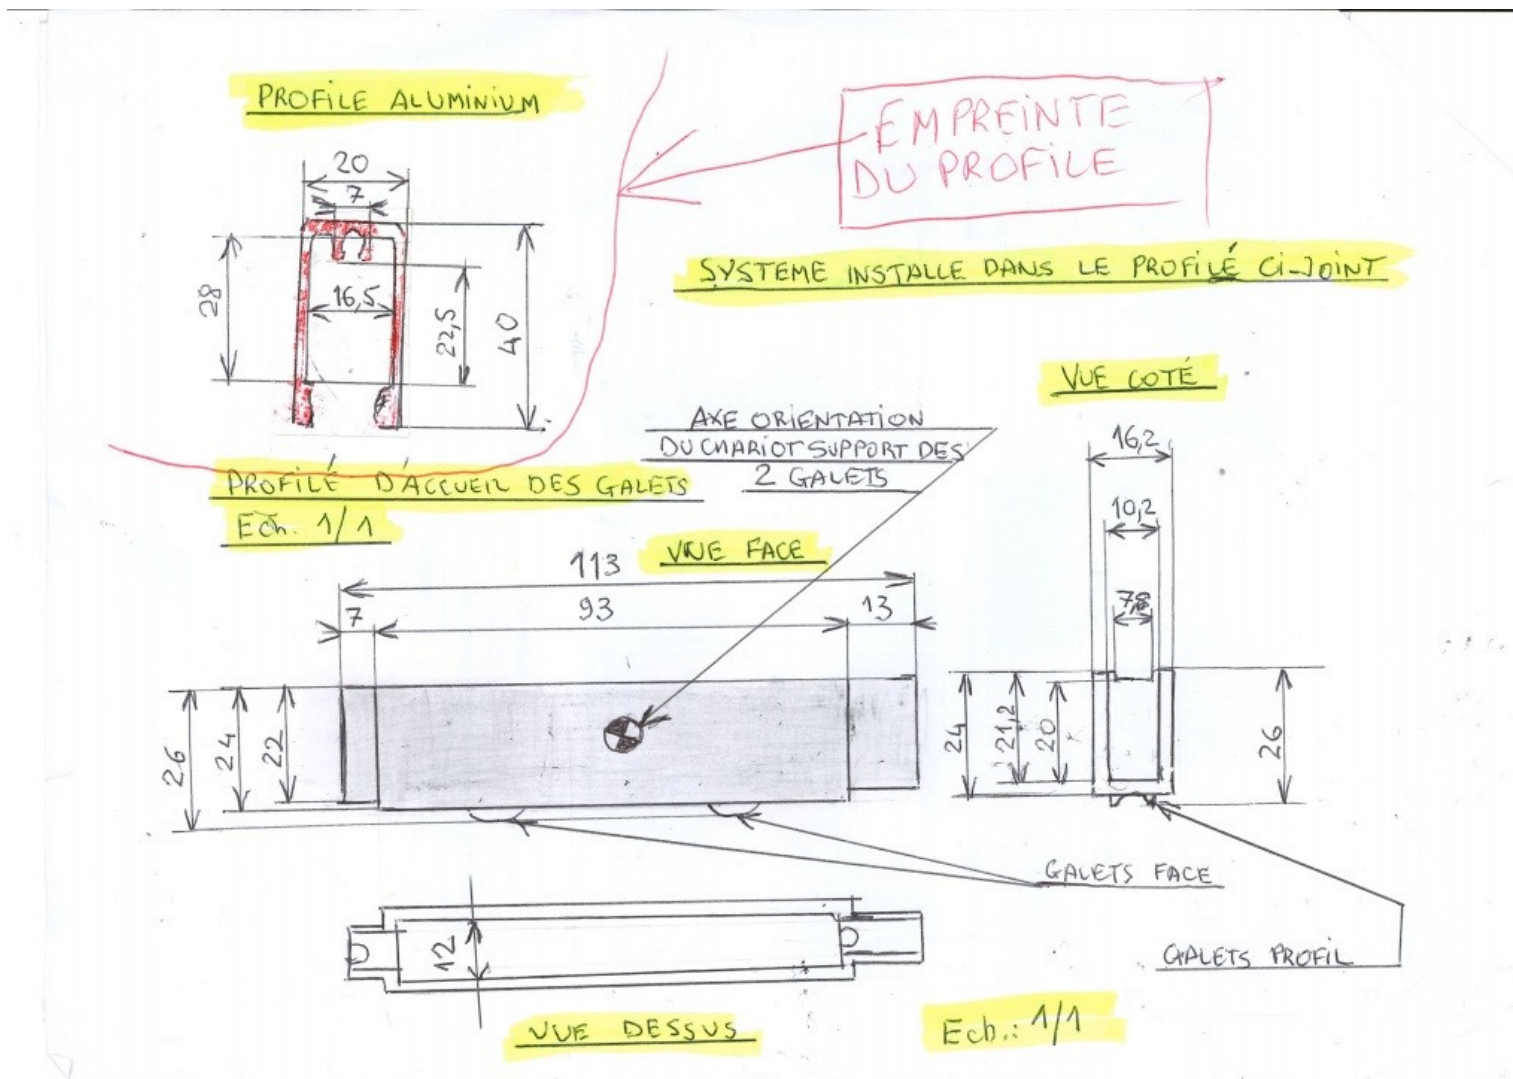 PROFILE ALUMINIUM
EMPREINTE
DU PROFILE
20
7
SYSTEME INSTALLE DANS LE PROFILÉ Ci-JOINT
28
16,5
22,5
40
VUE COTÉ
AXE ORIENTATION
DU CHARIOT SUPPORT DES
2 GALETS
16,2
PROFILÉ D'ACCUEIL DES GALETS
Ech. 1/1
10,2
VUE FACE
113
7
93
13
7,8
26
24
22
24
21,2
20
26
GALETS FACE
12
GALETS PROFIL
VUE DESSUS
Ech.: 1/1